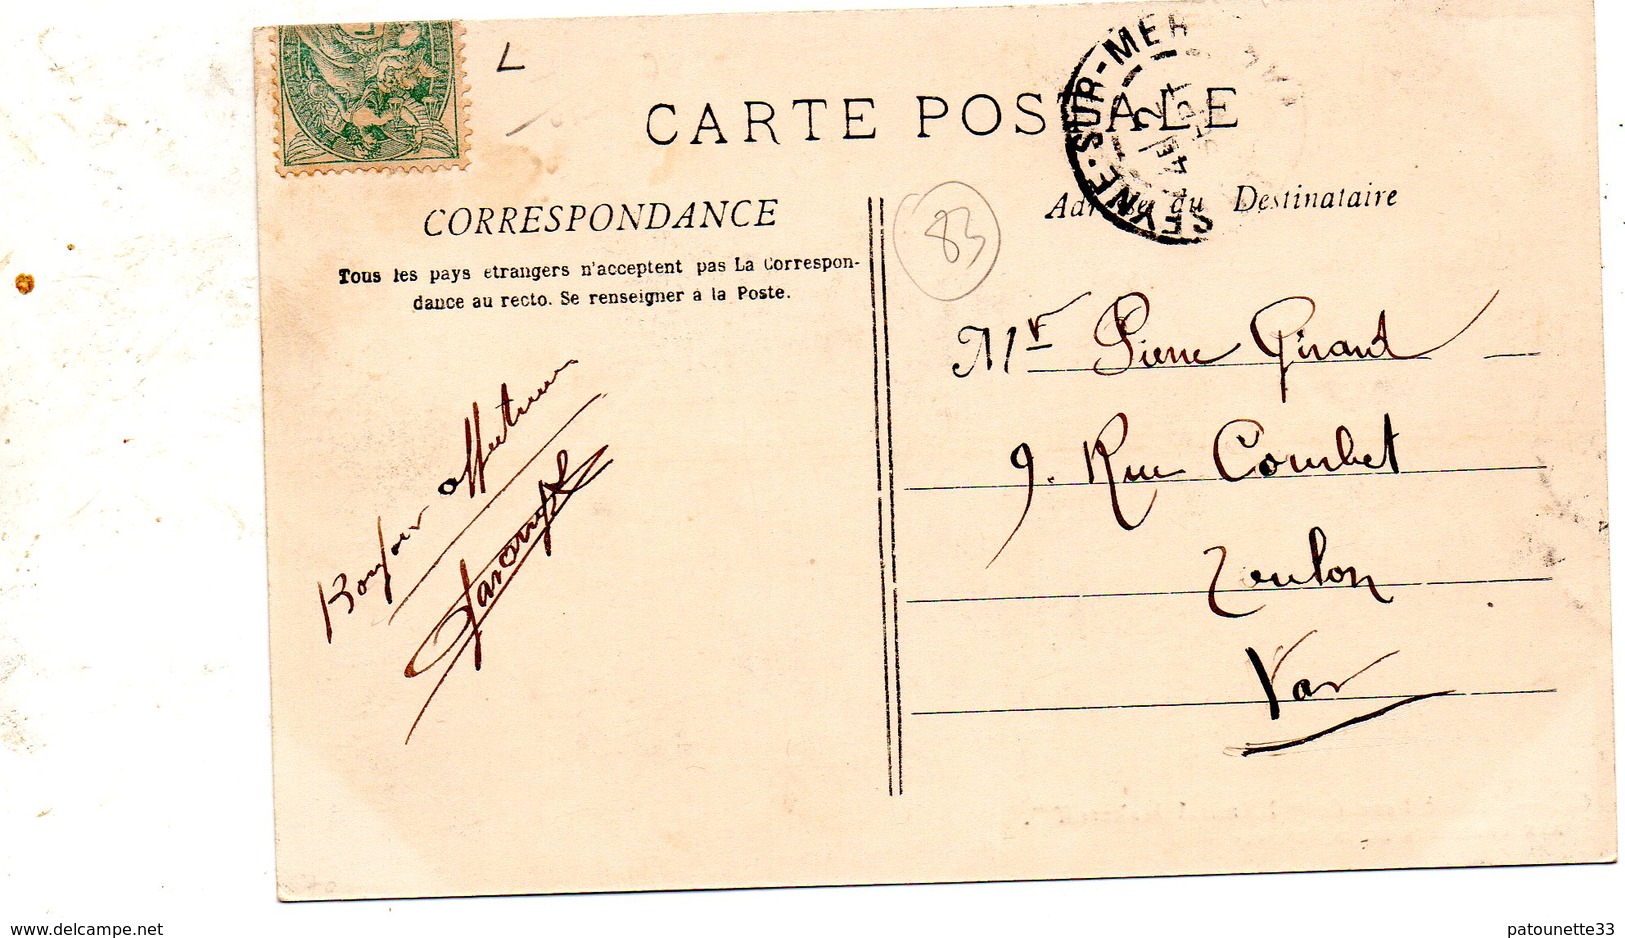 CARTE POSTALE
SEYNE-SUR-MER
CORRESPONDANCE
Tous les pays etrangers n'acceptent pas La Correspon-
dance au recto. Se renseigner à la Poste.
Adresse du Destinataire
83
Mr Pierre Girard
9. Rue Courbet
Toulon
Var
Bonjour affectueux
www.delcampe.net
patounette33